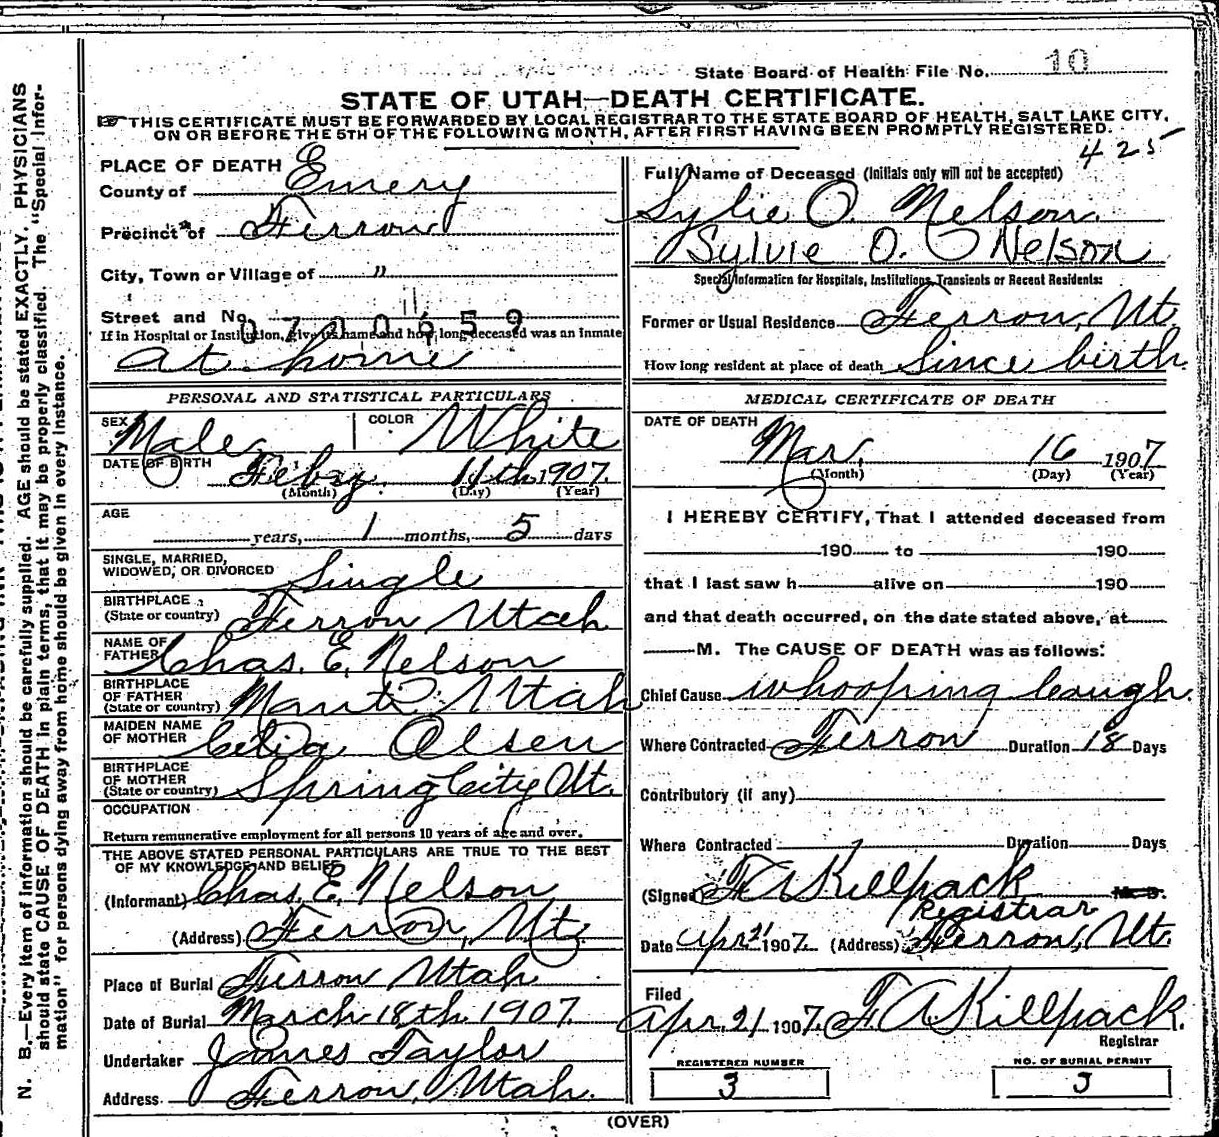 State Board of Health File No. 10
STATE OF UTAH—DEATH CERTIFICATE.
THIS CERTIFICATE MUST BE FORWARDED BY LOCAL REGISTRAR TO THE STATE BOARD OF HEALTH, SALT LAKE CITY,
ON OR BEFORE THE 5TH OF THE FOLLOWING MONTH, AFTER FIRST HAVING BEEN PROMPTLY REGISTERED.
425
PLACE OF DEATH
County of Emery
Precinct of Ferron
City, Town or Village of "
Street and No. "
0700659
If in Hospital or Institution, give its name and how long deceased was an inmate
at home
Full Name of Deceased (Initials only will not be accepted)
Sylie O. Nelson.
Sylvie O. Nelson
Special Information for Hospitals, Institutions, Transients or Recent Residents:
Former or Usual Residence Ferron, Ut.
How long resident at place of death Since birth.
PERSONAL AND STATISTICAL PARTICULARS
SEX Male COLOR White
DATE OF BIRTH Febry. 11th 1907.
(Month) (Day) (Year)
AGE
years, 1 months, 5 days
SINGLE, MARRIED,
WIDOWED, OR DIVORCED Single
BIRTHPLACE
(State or country) Ferron Utah
NAME OF
FATHER Chas. E. Nelson
BIRTHPLACE
OF FATHER
(State or country) Manti Utah
MAIDEN NAME
OF MOTHER Celia Olsen
BIRTHPLACE
OF MOTHER
(State or country) Spring City Ut.
OCCUPATION
Return remunerative employment for all persons 10 years of age and over.
THE ABOVE STATED PERSONAL PARTICULARS ARE TRUE TO THE BEST
OF MY KNOWLEDGE AND BELIEF
(Informant) Chas. E. Nelson
(Address) Ferron, Ut.
Place of Burial Ferron Utah
Date of Burial March 18th 1907
Undertaker James Taylor
Address Ferron, Utah.
MEDICAL CERTIFICATE OF DEATH
DATE OF DEATH
Mar. 16 1907
(Month) (Day) (Year)
I HEREBY CERTIFY, That I attended deceased from
190 to 190
that I last saw h alive on 190
and that death occurred, on the date stated above, at
M. The CAUSE OF DEATH was as follows:
Chief Cause whooping Cough.
Where Contracted Ferron Duration 18 Days
Contributory (if any)
Where Contracted Duration Days
(Signed) F A Killpack M. D.
Registrar
Date Apr 21 1907. (Address) Ferron, Ut.
Filed
Apr. 21 1907. F. A. Killpack.
Registrar
REGISTERED NUMBER
3
NO. OF BURIAL PERMIT
3
(OVER)
N. B.—Every item of information should be carefully supplied. AGE should be stated EXACTLY. PHYSICIANS
should state CAUSE OF DEATH in plain terms, that it may be properly classified. The "Special Infor-
mation" for persons dying away from home should be given in every instance.